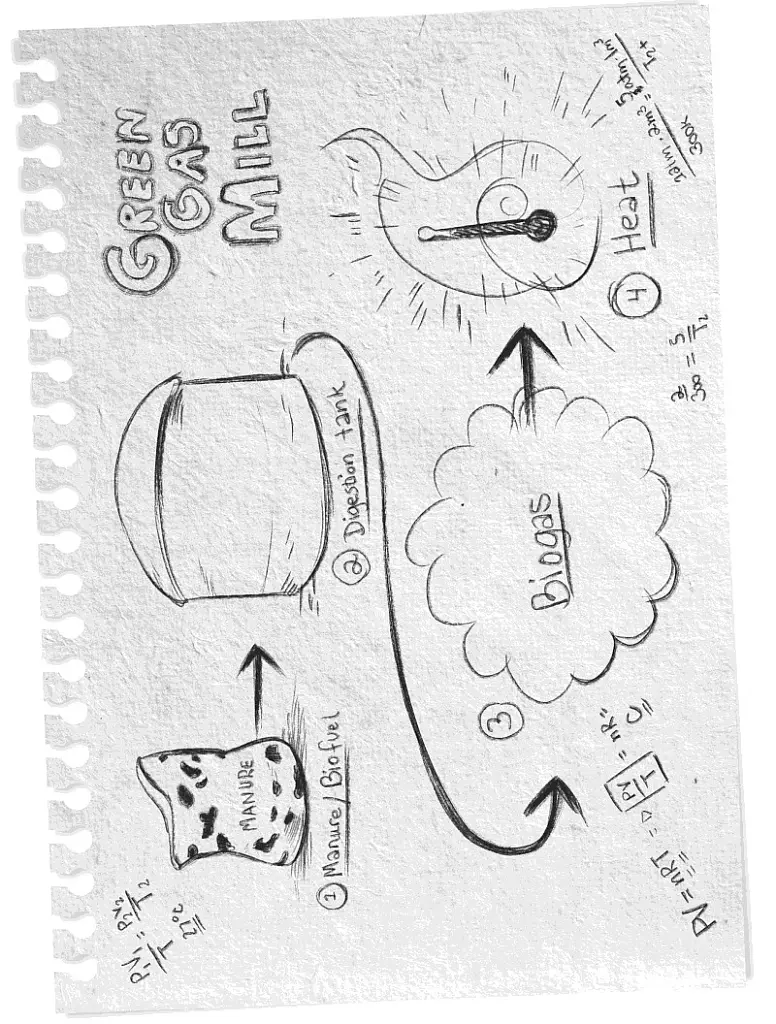 GREEN
GAS
MILL
P₁V₁/T = P₂V₂/T₂
27°C
MANURE
① Manure/Biofuel
② Digestion tank
③
Biogas
④ Heat
PV = nRT
PV/T = nR"
C
2/300 = 5/T₂
300k